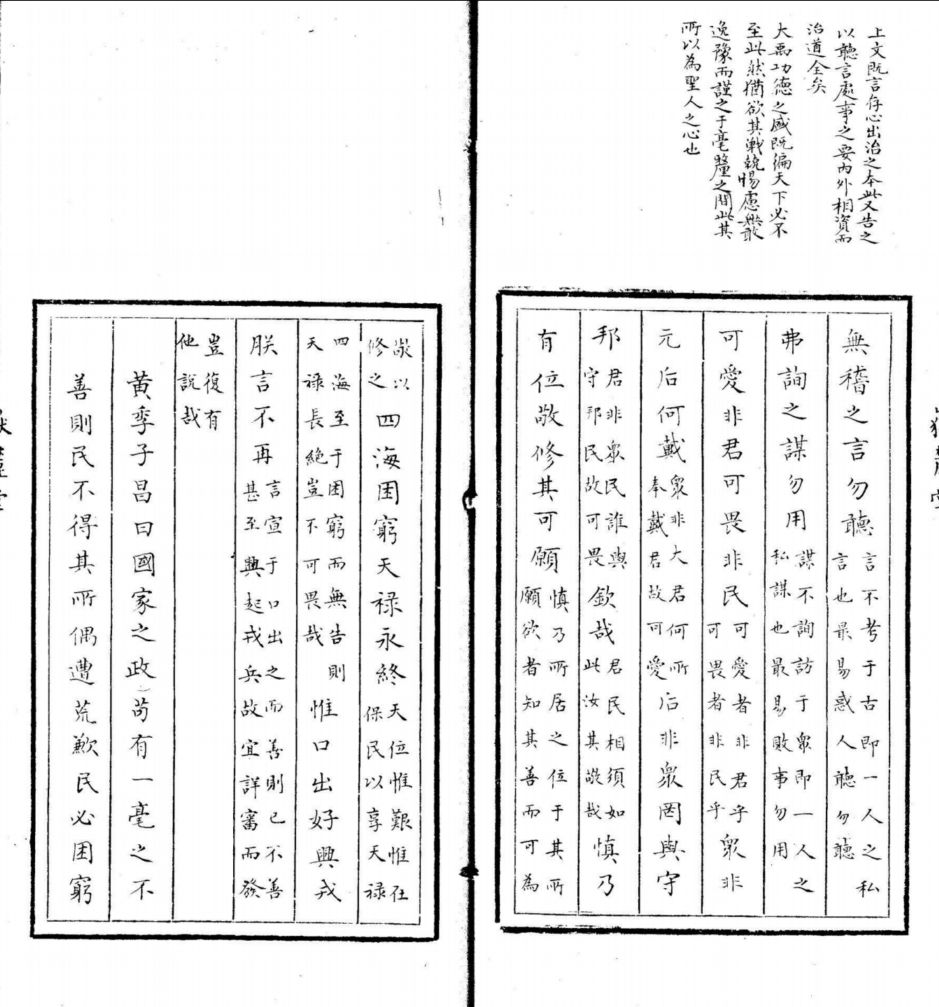 上文既言存心出治之本此又告之
以聽言處事之要內外相資而
治道全矣
大禹功德之盛既徧天下必不
至此然猶欲其戰兢惕慮無敢
逸豫而謹之于毫釐之間此其
所以為聖人之心也
無稽之言勿聽言不考于古即一人之私
言也最易惑人聽勿聽
弗詢之謀勿用謀不詢訪于眾即一人之
私謀也最易敗事勿用
可愛非君可畏非民可愛者非君乎
可畏者非民乎眾非
元后何戴眾非大君何所
奉戴君故可愛后非眾罔與守
邦君非眾民誰與
守邦民故可畏欽哉君民相須如
此汝其敬哉慎乃
有位敬修其可願慎乃所居之位于其所
願欲者知其善而可為
敬以
修之四海困窮天祿永終天位惟艱惟在
保民以享天祿
四海至于困窮而無告則
天祿長絕豈不可畏哉惟口出好興戎
朕言不再言宣于口出之而善則已不善
甚至興起戎兵故宜詳審而發
豈復有
他說哉
黃季子昌曰國家之政苟有一毫之不
善則民不得其所偶遭荒歉民必困窮